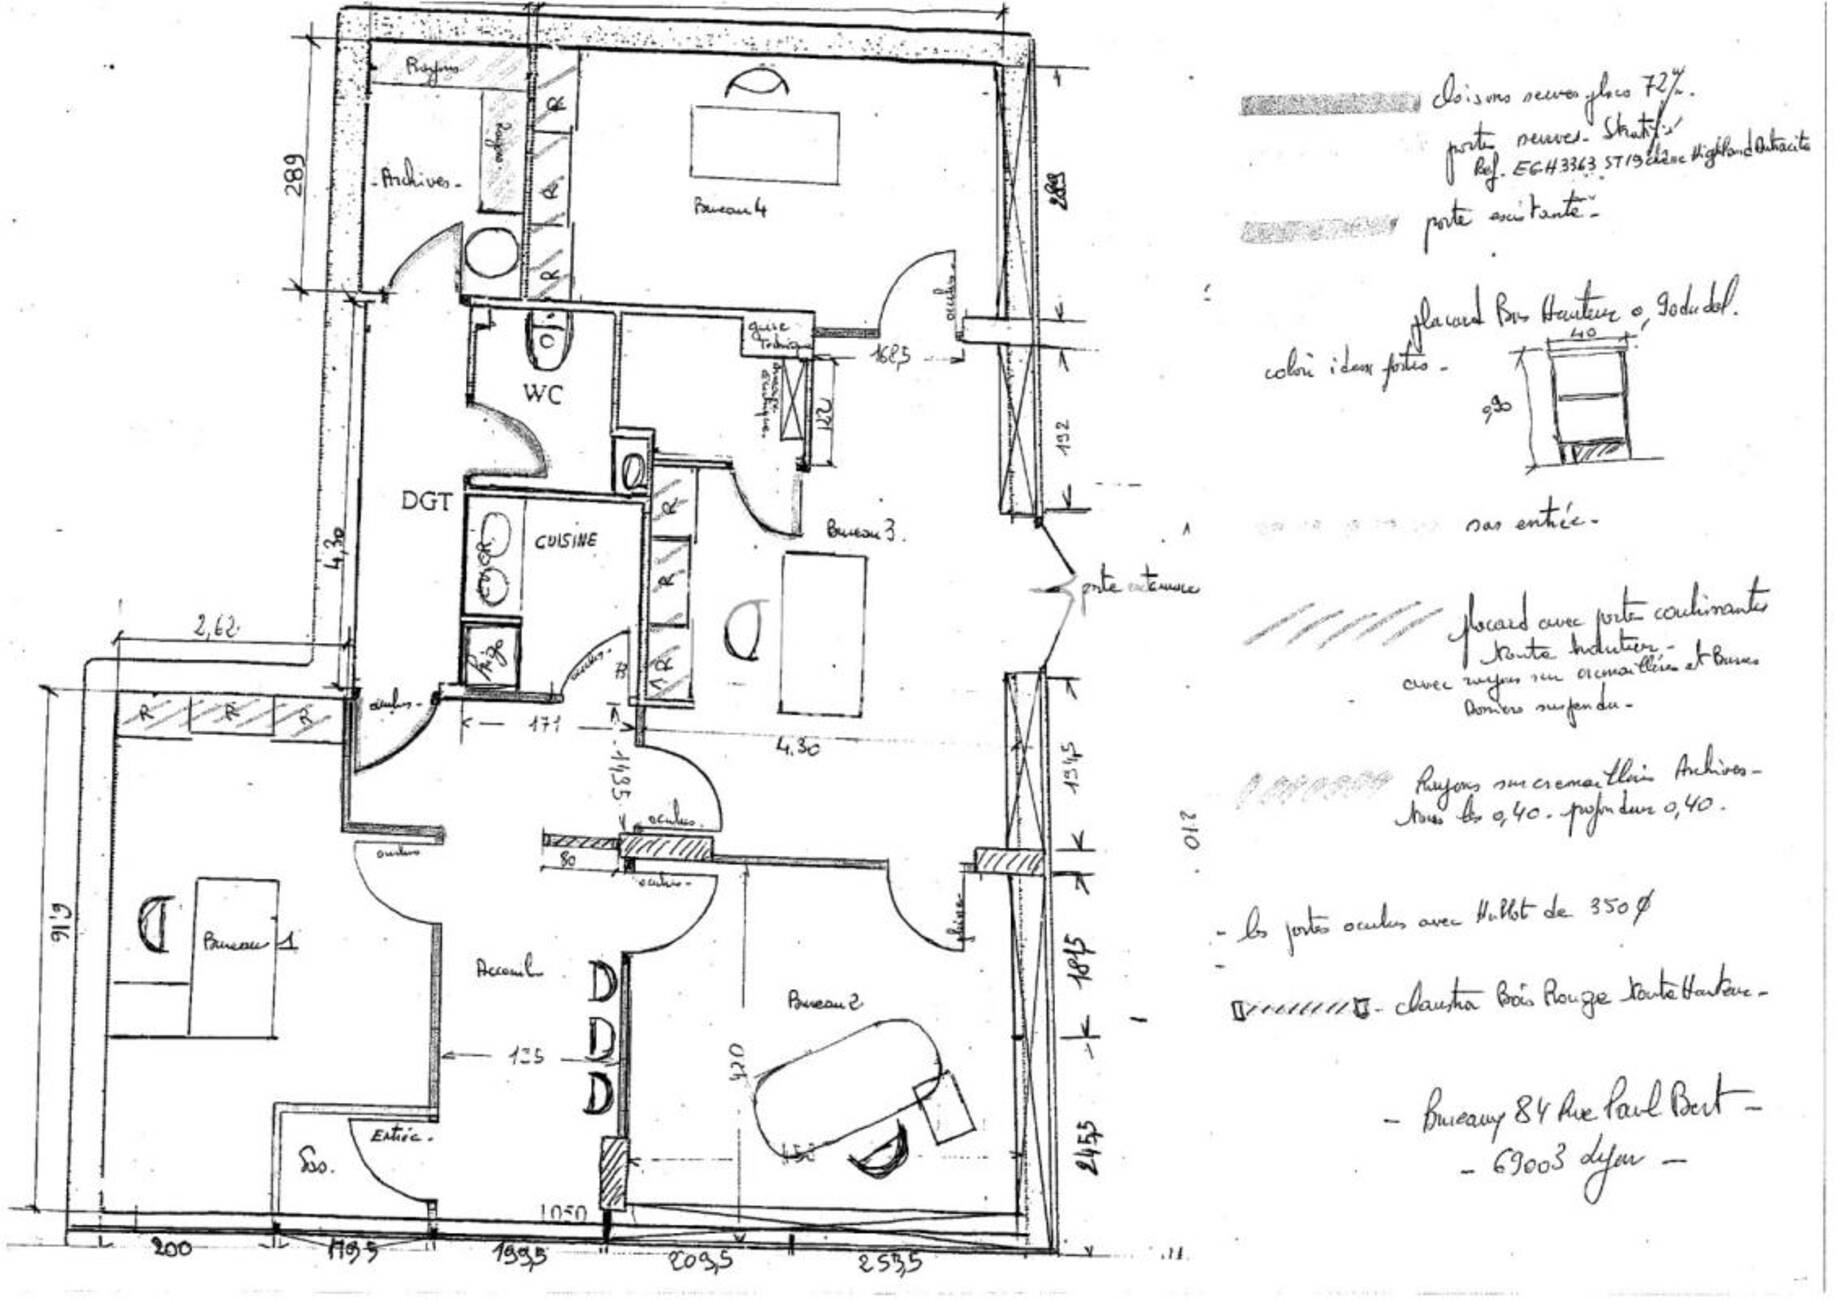 Rayons
Rayons
289
-Archives-
R
R
R
Bureau 4
289
oculus
gaine
Technique
168,5
122
192
WC
DGT
4,30
CUISINE
frigo
oculus
R
R
R
Bureau 3.
porte exterieure
2,62
R
R
R
oculus-
171
148,5
4.30
194,5
oculus.
oculus
80
oculus-
pleine
616
Bureau 1
Accueil
Bureau 2
181,5
195
420
Entrée.
Sas.
245,5
1050
200
179,5
199,5
209,5
253,5
210
cloisons neuves placo 72%.
portes neuves- Stratifié
Ref. EGH3363 ST19 chêne Highland Antracite
porte existante-
placard Bas Hauteur 0,90 du sol.
40
colori idem portes-
0,90
sas entrée-
placard avec porte coulissantes
toute hauteur-
avec rayons sur cremaillères et Barres
Dossiers suspendu-
Rayons sur cremaillère Archives-
tous les 0,40. profondeur 0,40.
- les portes oculus avec Hublot de 350 Ø
- claustra Bois Rouge toute Hauteur-
- Bureaux 84 Rue Paul Bert -
- 69003 Lyon -